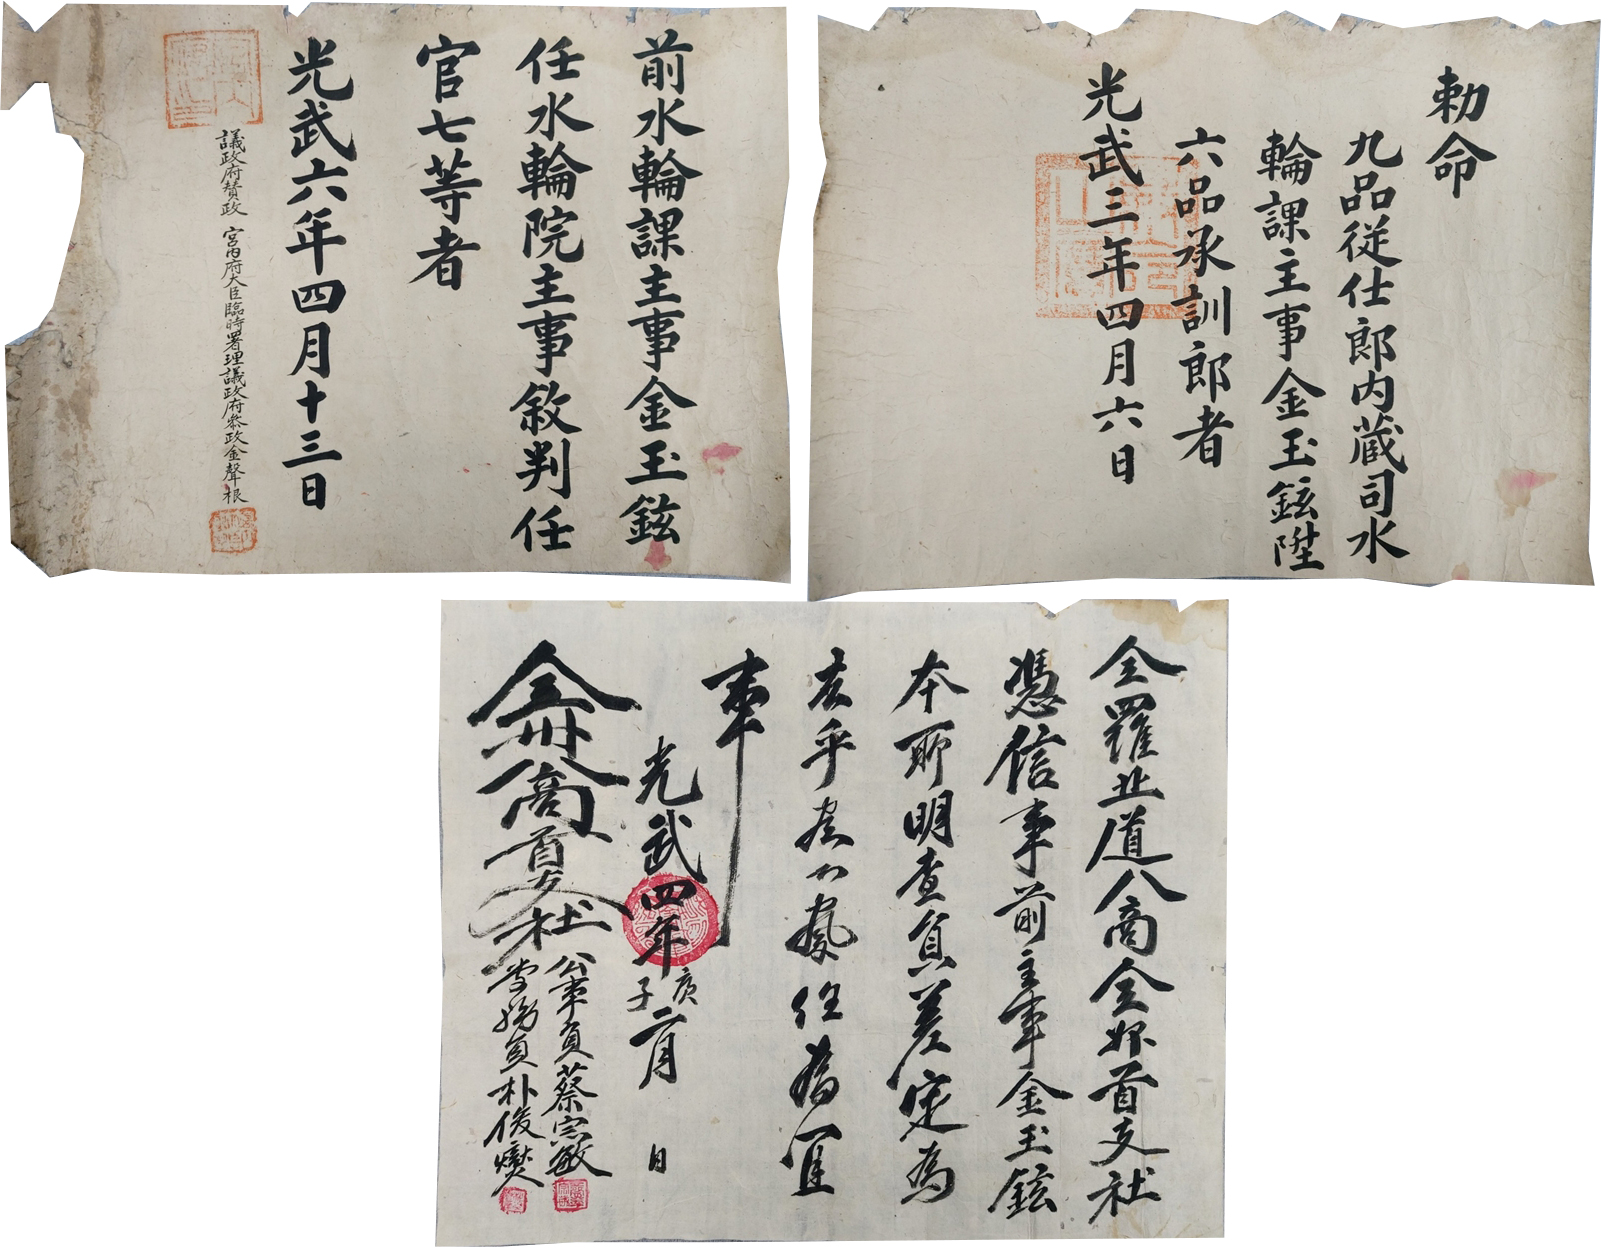 前水輪課主事金玉鉉
任水輪院主事敘判任
官七等者
光武六年四月十三日
議政府贊政 宮內府大臣臨時署理議政府參政金聲根
勅命
九品從仕郎內蔵司水
輪課主事金玉鉉陞
六品承訓郎者
光武三年四月六日
全羅北道八商全州首支社
憑信事前主事金玉鉉
本所明查員差定為
去乎
任為宜
事
光武四年庚子二月 日
全州八商首支社
公事員蔡宗敏
掌務員朴俊燮